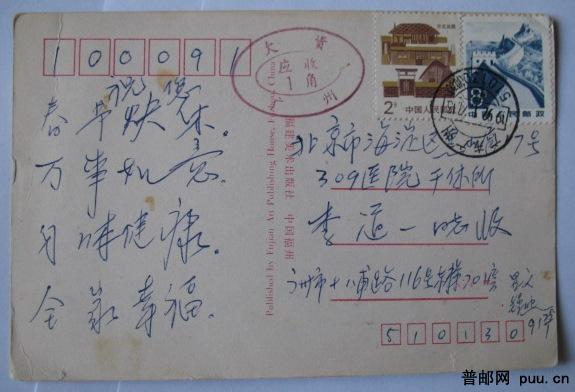 100091
祝您
春节快乐。
万事如意
身体健康.
全家幸福.
欠资
应收
1角
广州
2分
中国人民邮政
8
中国人民邮政
福建美术出版社 中国福州
Published by Fujian Art Publishing House, Fuzhou China
北京市海淀区 7号
309医院干休所
李道一 收
广州市十八甫 路116号
510130
普邮网 puu.cn